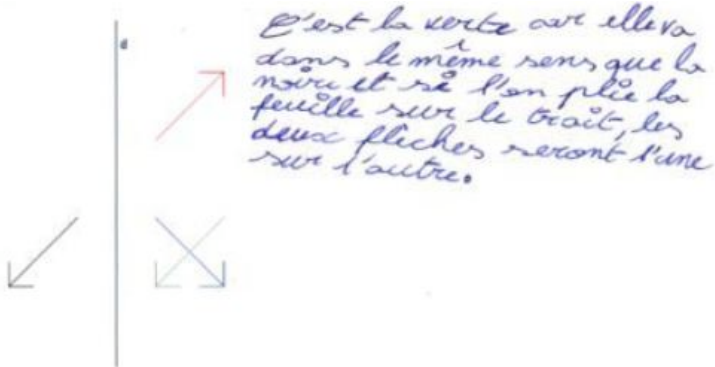 d
C'est la verte car elle va
dans le même sens que la
noire et si l'on plie la
feuille sur le trait, les
deux flèches seront l'une
sur l'autre.